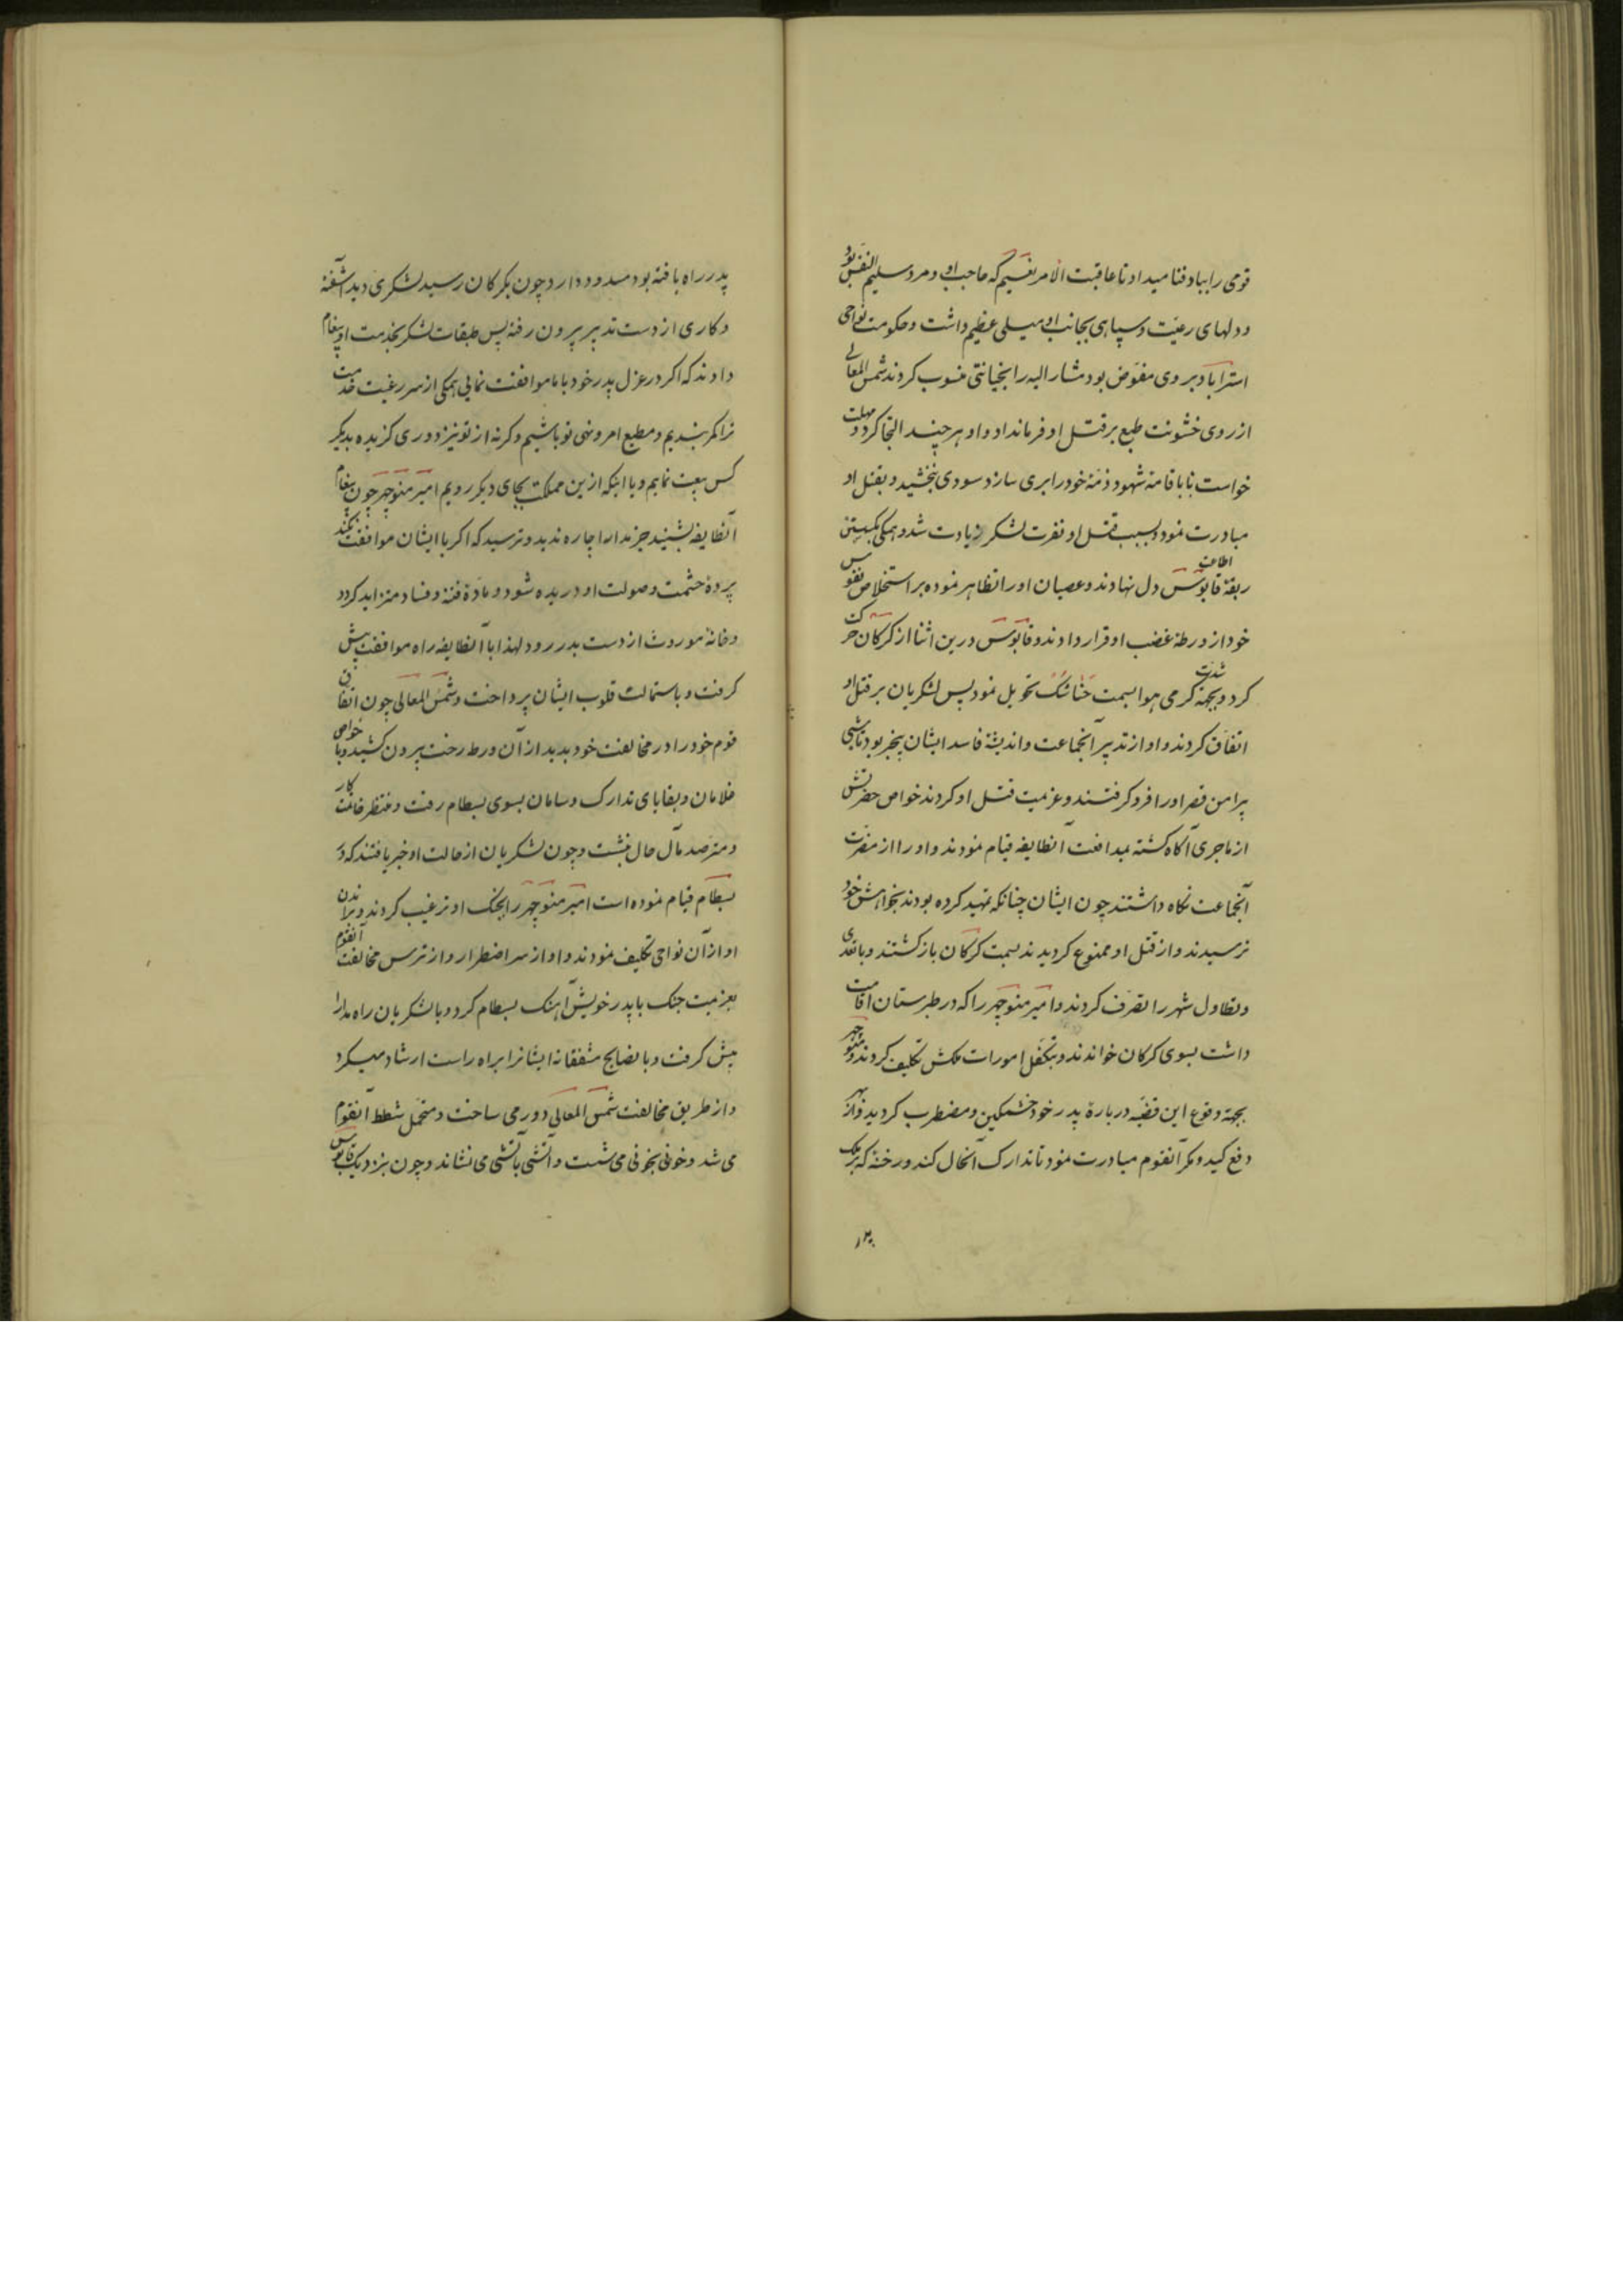 قومی را بباد فنا میداد تا عاقبت الامر نعیم که حاجب او و مرد سلیم النفس بود
و دلهای رعیت و سپاهی بجانب او میلی عظیم داشت و حکومت نواحی
استراباد بر وی مفوض بود مشار الیه را بخیانتی منسوب کردند شمس المعالی
از روی خشونت طبع بر قتل او فرمان داد و او هر چند التجا کرد و مهلت
خواست تا باقامة شهود ذمه خود را بری سازد سودی نبخشید و بقتل او
مبادرت نمود و بسبب قتل او نفرت لشکر زیادت شد و همکی بکسیتن
ربقه اطاعت قابوس دل نهادند و عصیان او را تظاهر نموده بر استخلاص نفوس
خود از ورطه غضب او قرار دادند و قابوس درین اثنا از کرکان حرکت
کرد و بجهة شدت کرمی هوا بسمت خناشک تحویل نمود پس لشکریان بر قتل او
اتفاق کردند و او از تدبیر آنجماعت و اندیشه فاسد ایشان بیخبر بود تا شبی
پیرامن قصر او را فرو کرفتند و عزمیت قتل او کردند خواص حضرتش
از ماجری آکاه کشته بمدافعت آنطایفه قیام نمودند و او را از مضرت
آنجماعت نکاه داشتند چون ایشان چنانکه تمهید کرده بودند بخواهش خود
نرسیدند و از قتل او ممنوع کردیدند بسمت کرکان باز کشتند و با تعدی
و تطاول شهر را تصرف کردند و امیر منوچهر را که در طبرستان اقامت
داشت بسوی کرکان خواندند و بتکفل امورات ملکش تکلیف کردند و منوچهر
بجهة وقوع این قضیه درباره پدر خود خشمکین و مضطرب کردید و از بهر
دفع کید و مکر آنقوم مبادرت نمود تا تدارک آنحال کند و رخنه که بملک
پدر راه یافته بود مسدود دارد چون بکرکان رسید لشکری دید آشفته
و کاری از دست تدبیر بیرون رفته پس طبقات لشکر بخدمت او پیغام
دادند که اکر در عزل پدر خود با ما موافقت نمایی همکی از سر رغبت خدمت
ترا کمر بندیم و مطیع امر و نهی تو باشیم و کرنه از تو نیز دوری کزیده بدیکر
کس بیعت نمایم و یا اینکه ازین مملکت بجای دیکر رویم امیر منوچهر چون پیغام
آنطایفه بشنید جز مدارا چاره ندید و ترسید که اکر با ایشان موافقت نکند
پرده حشمت و صولت او دریده شود و ماده فتنه و فساد متزاید کردد
و خانه موروث از دست بدر رود لهذا با آنطایفه راه موافقت پیش
کرفت و باستمالت قلوب ایشان پرداخت و شمس المعالی چون اتفاق
قوم خود را در مخالفت خود بدید از آن ورطه رخت بیرون کشید و با خواص
غلامان و بقایای تدارک و سامان بسوی بسطام رفت و منتظر خاتمت کار
و مترصد مآل حال بنشست و چون لشکریان از حالت او خبر یافتند که در
بسطام قیام نموده است امیر منوچهر را بجنک او ترغیب کردند و براندن
او از آن نواحی تکلیف نمودند و او از سر اضطرار و از ترس مخالفت آنقوم
بعزمیت جنک با پدر خویش آهنک بسطام کرد و با لشکریان راه مدارا
پیش کرفت و با نصایح مشفقانه ایشانرا براه راست ارشاد میکرد
و از طریق مخالفت شمس المعالی دور می ساخت و متحمل شطط آنقوم
می شد و خونی بخونی می شست و آتشی بآتشی می نشاند و چون بنزدیک قابوس